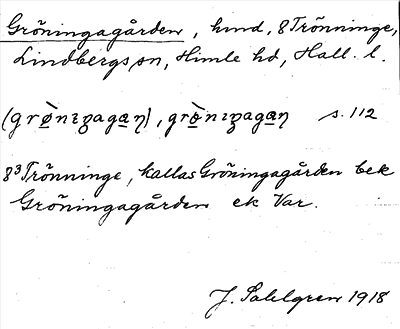 Gröningagården, hmd, 8 Trönninge,
Lindbergs sn, Himle hd, Hall. l.
(grø̀nıŋagaņ), grø̀nıŋagaņ s. 112
8³ Trönninge, kallas Gröningagården bek
Gröningagården ek Var.
J. Sahlgren 1918